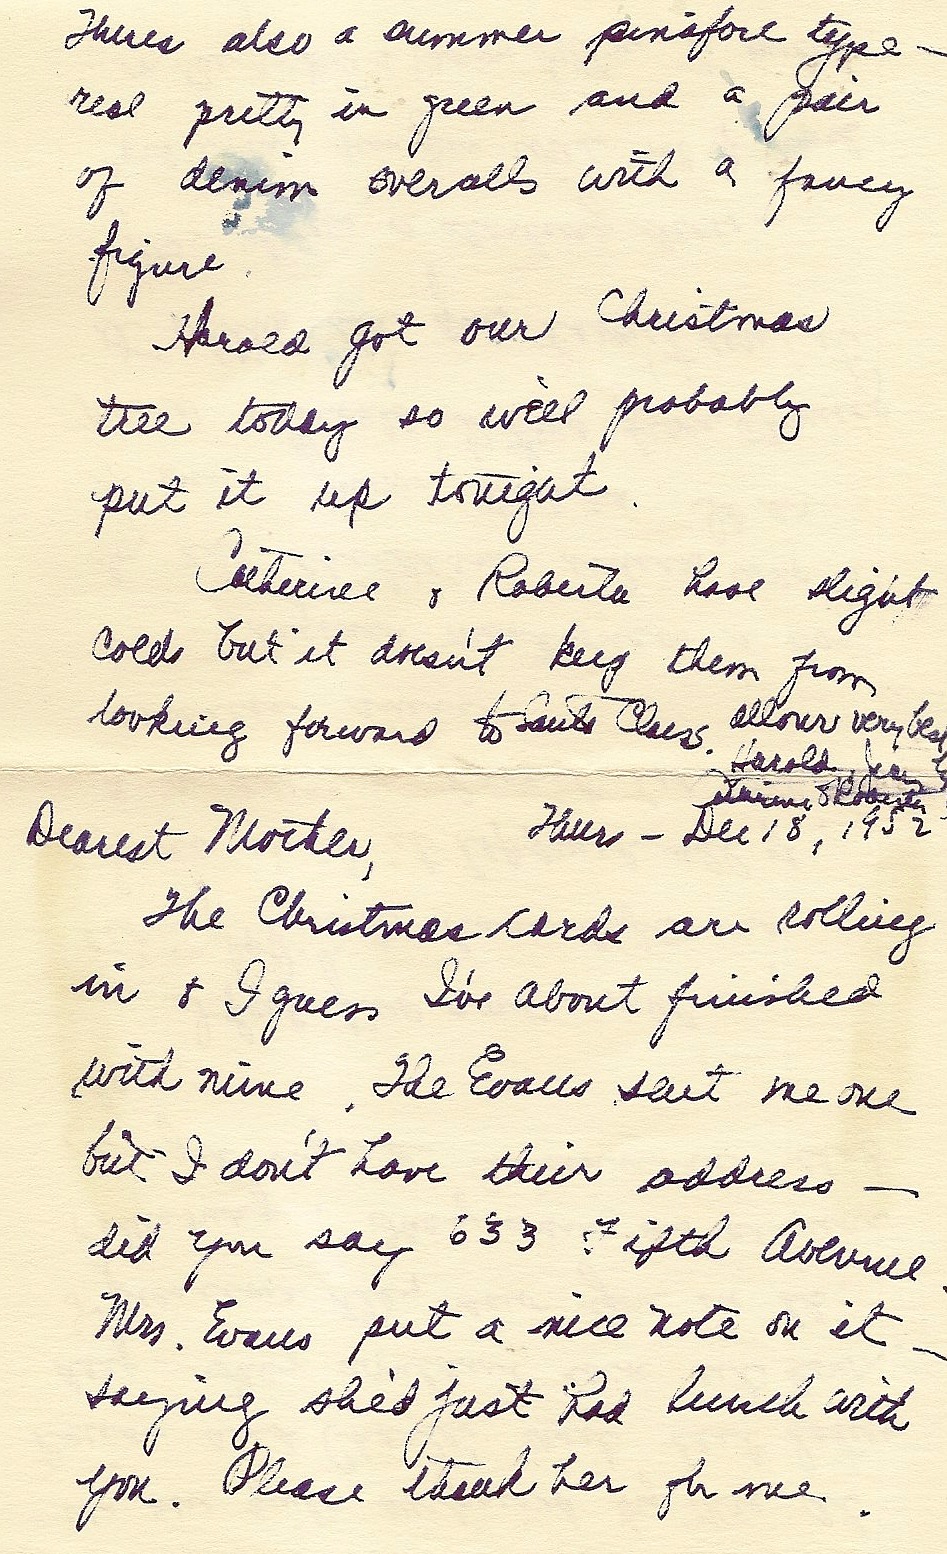 Theres also a summer pinafore type —
real pretty in green and a pair
of denim overalls with a fancy
figure.
Harold got our Christmas
tree today so we'll probably
put it up tonight.
Catherine & Roberta have slight
colds but it doesn't keep them from
looking forward to Santa Claus. all our very best
Harold, Jerry
& Roberta
Dearest Mother,
Thurs - Dec 18, 1952
The Christmas cards are rolling
in & I guess I've about finished
with mine. The Evans sent me one
but I don't have their address —
did you say 633 Fifth Avenue.
Mrs. Evans put a nice note on it —
saying she'd just had lunch with
you. Please thank her for me.